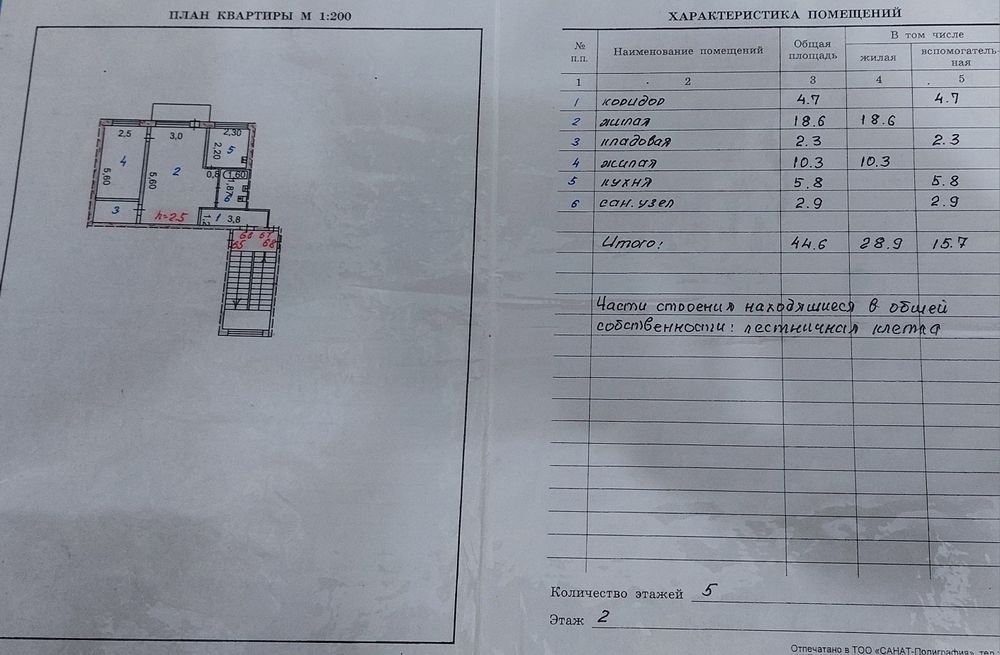 ПЛАН КВАРТИРЫ М 1:200
2,5
3,0
2,30
2,20
5
4
5,60
5,60
2
0,8
1,60
1,87
6
3
h=2.5
1,2
1
3,8
66 67
65 68
ХАРАКТЕРИСТИКА ПОМЕЩЕНИЙ
№ п.п. Наименование помещений Общая площадь В том числе
жилая вспомогатель-ная
1 2 3 4 5
1 коридор 4.7 4.7
2 жилая 18.6 18.6
3 кладовая 2.3 2.3
4 жилая 10.3 10.3
5 кухня 5.8 5.8
6 сан. узел 2.9 2.9
Итого: 44.6 28.9 15.7
Части строения находящиеся в общей
собственности: лестничная клетка
Количество этажей 5
Этаж 2
Отпечатано в ТОО «САНАТ-Полиграфия», тел.